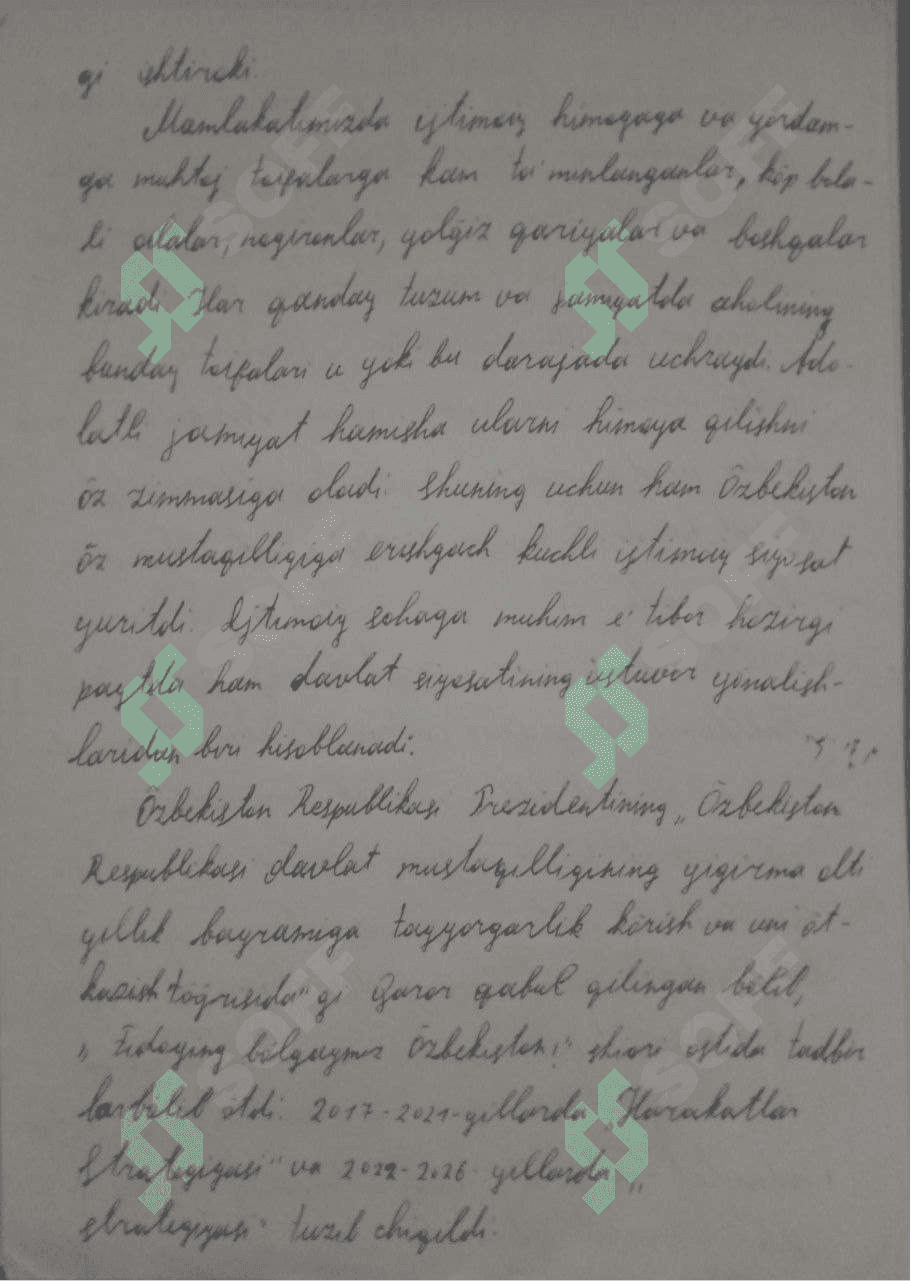 gi ishtiroki.
Mamlakatimizda ijtimoiy himoyaga va yordam-
ga muhtoj toifalarga kam ta'minlanganlar, köp bola-
li oilalar, nogironlar, yolğiz qariyalar va boshqalar
kiradi. Har qanday tuzum va jamiyatda aholining
bunday toifalari u yoki bu darajada uchraydi. Ado-
latli jamiyat hamisha ularni himoya qilishni
öz zimmasiga oladi. Shuning uchun ham Özbekiston
öz mustaqilligiga erishgach kuchli ijtimoiy siyosat
yuritdi. Ijtimoiy sohaga muhim e'tibor hozirgi
paytda ham davlat siyosatining ustuvor yönalish-
laridan biri hisoblanadi.
Özbekiston Respublikasi Prezidentining „Özbekiston
Respublikasi davlat mustaqilligining yigirma olti
yillik bayramiga tayyorgarlik körish va uni öt-
kazish töğrisida"gi Qaror qabul qilingan bölib,
„Fidoying bölgaymiz Özbekiston!" shiori ostida tadbir
lar bölib ötdi. 2017-2021-yillarda „Harakatlar
Strategiyasi" va 2022-2026-yillarda „
strategiyasi" tuzib chiqildi.
SOFF
SOFF
SOFF
SOFF
SOFF
SOFF